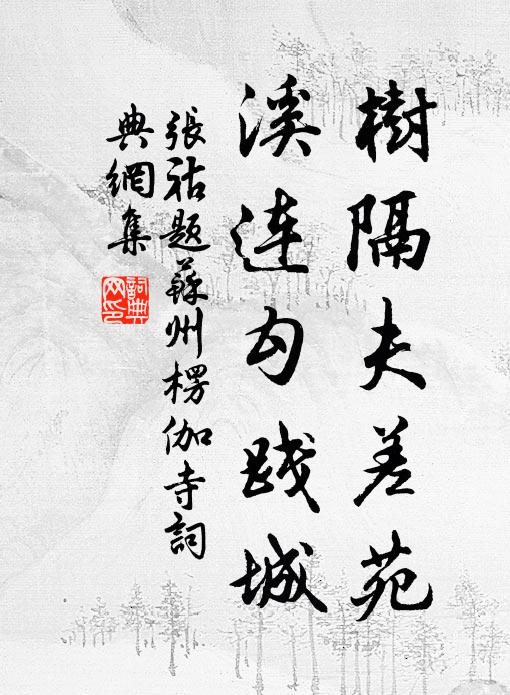 樹隔夫差苑
溪連勾踐城
張祜題蘇州楞伽寺詞
典網集
詞典網印